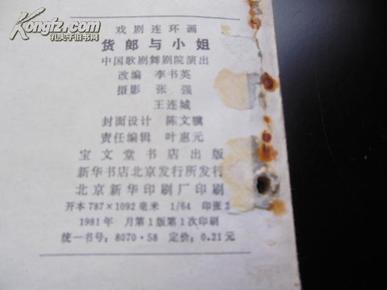 戏剧连环画
货郎与小姐
中国歌剧舞剧院演出
改编 李书英
摄影 张强
王连城
封面设计 陈文骥
责任编辑 叶惠元
宝文堂书店出版
新华书店北京发行所发行
北京新华印刷厂印刷
开本787×1092毫米 1/64 印张2
1981年 月第1版第1次印刷
统一书号：8070·58 定价：0.21元